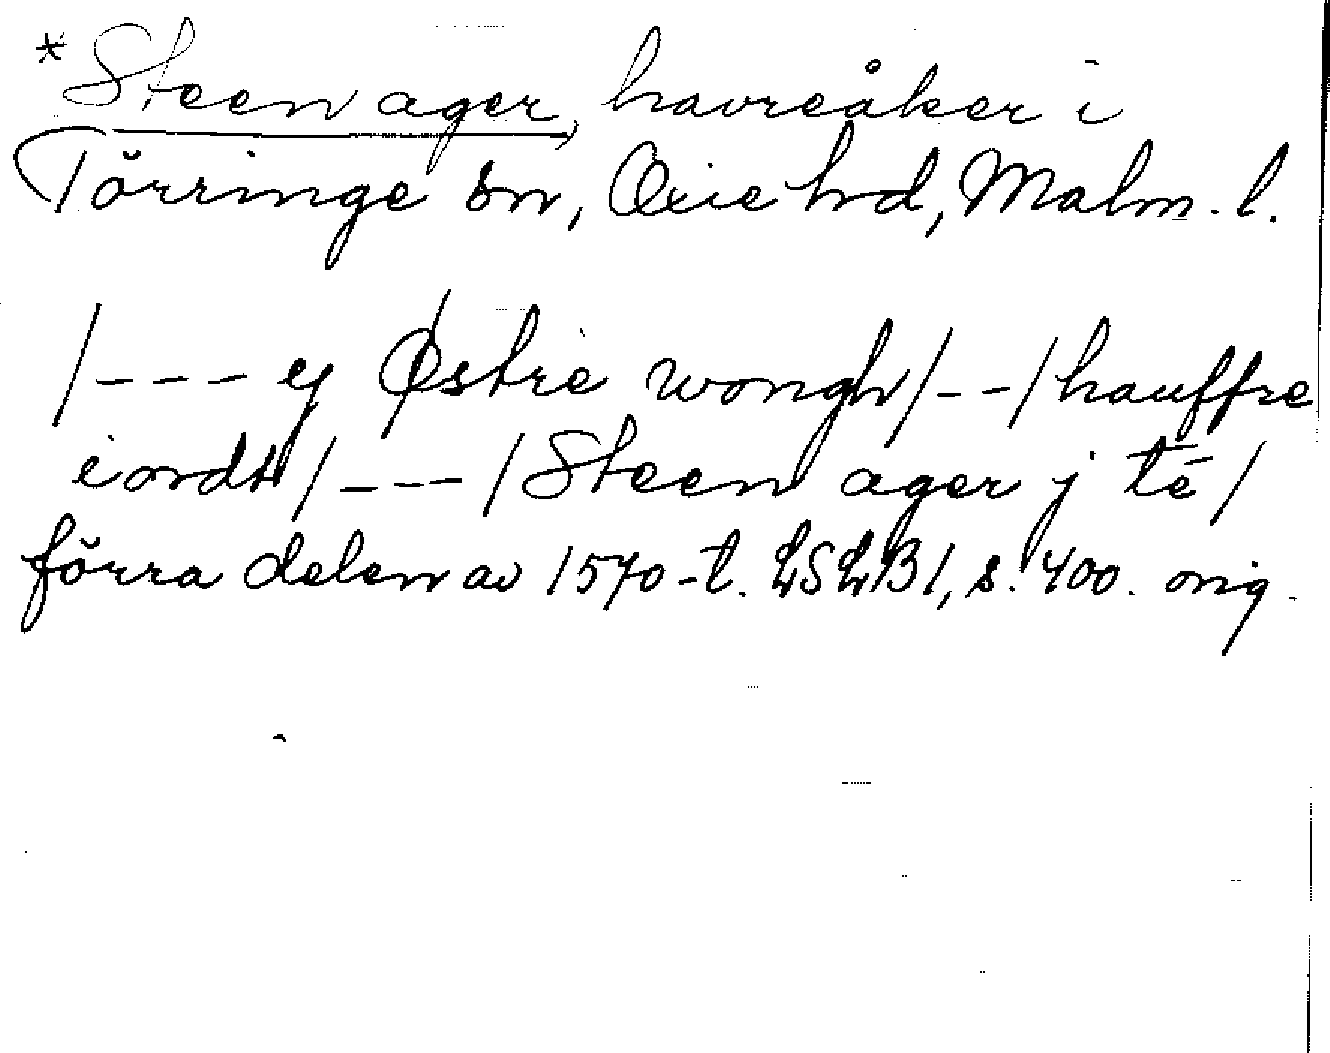 *Steen ager, havreåker i
Törringe sn, Oxie hd, Malm. l.
/--- ey Østre wongh/--/hauffre
iordt/---/Steen ager j té/
förra delen av 1570-t. LSLB1, s. 400. orig.